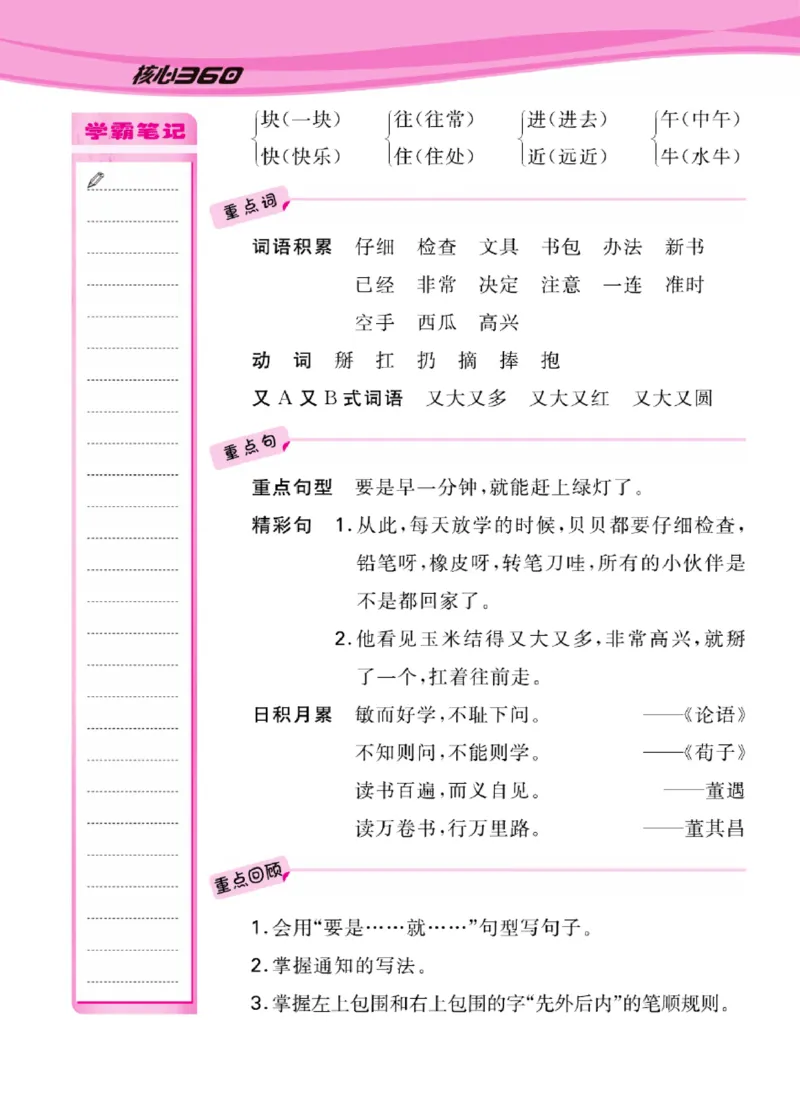 核心360
学霸笔记
块(一块) 往(往常) 进(进去) 午(中午)
快(快乐) 住(住处) 近(远近) 牛(水牛)
重点词
词语积累 仔细 检查 文具 书包 办法 新书
已经 非常 决定 注意 一连 准时
空手 西瓜 高兴
动 词 掰 扛 扔 摘 捧 抱
又A又B式词语 又大又多 又大又红 又大又圆
重点句
重点句型 要是早一分钟,就能赶上绿灯了。
精彩句 1.从此,每天放学的时候,贝贝都要仔细检查,
铅笔呀,橡皮呀,转笔刀哇,所有的小伙伴是
不是都回家了。
2.他看见玉米结得又大又多,非常高兴,就掰
了一个,扛着往前走。
日积月累 敏而好学,不耻下问。 ——《论语》
不知则问,不能则学。 ——《荀子》
读书百遍,而义自见。 ——董遇
读万卷书,行万里路。 ——董其昌
重点回顾
1.会用“要是……就……”句型写句子。
2.掌握通知的写法。
3.掌握左上包围和右上包围的字“先外后内”的笔顺规则。